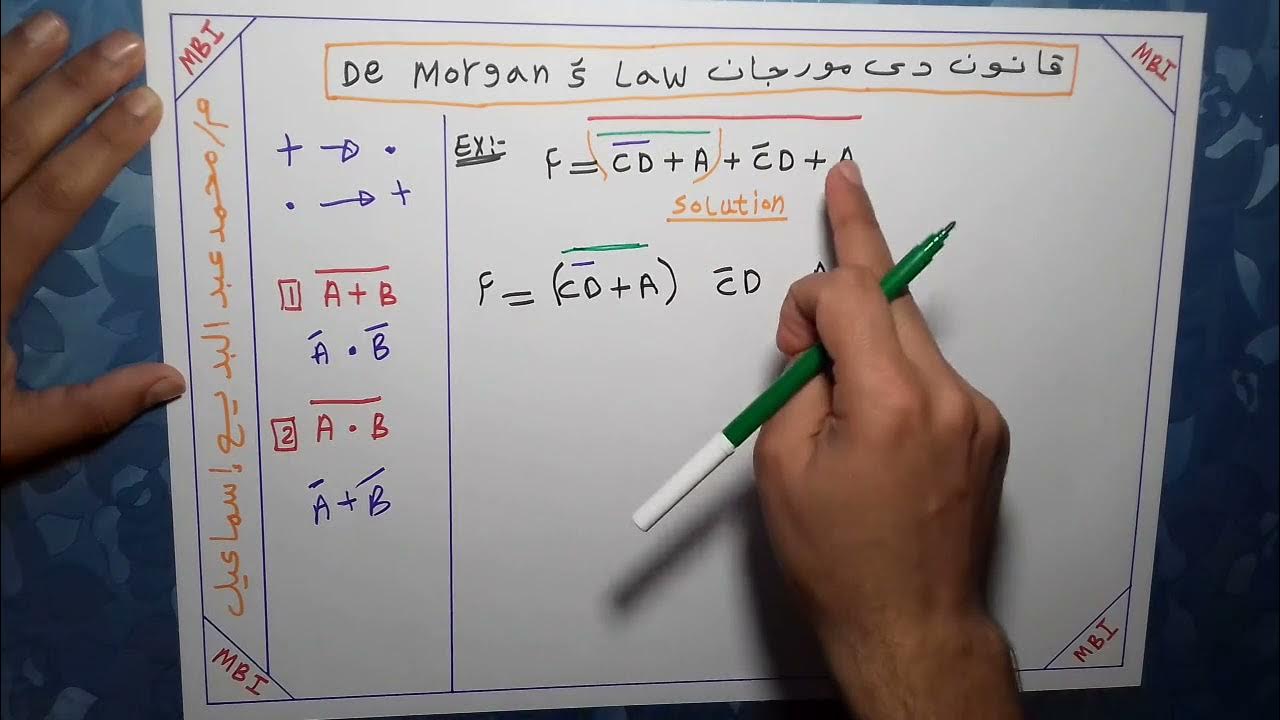 MBI
MBI
De Morgan's Law قانون دى مورجان
م/محمد عبد البديع إسماعيل
+ → •
• → +
1 A + B̅
A̅ • B̅
2 A • B̅
A̅ + B̅
EX:-
F = C̅D̅ + A + C̅D + A
Solution
F = (C̅D̅ + A) C̅D A
MBI
MBI